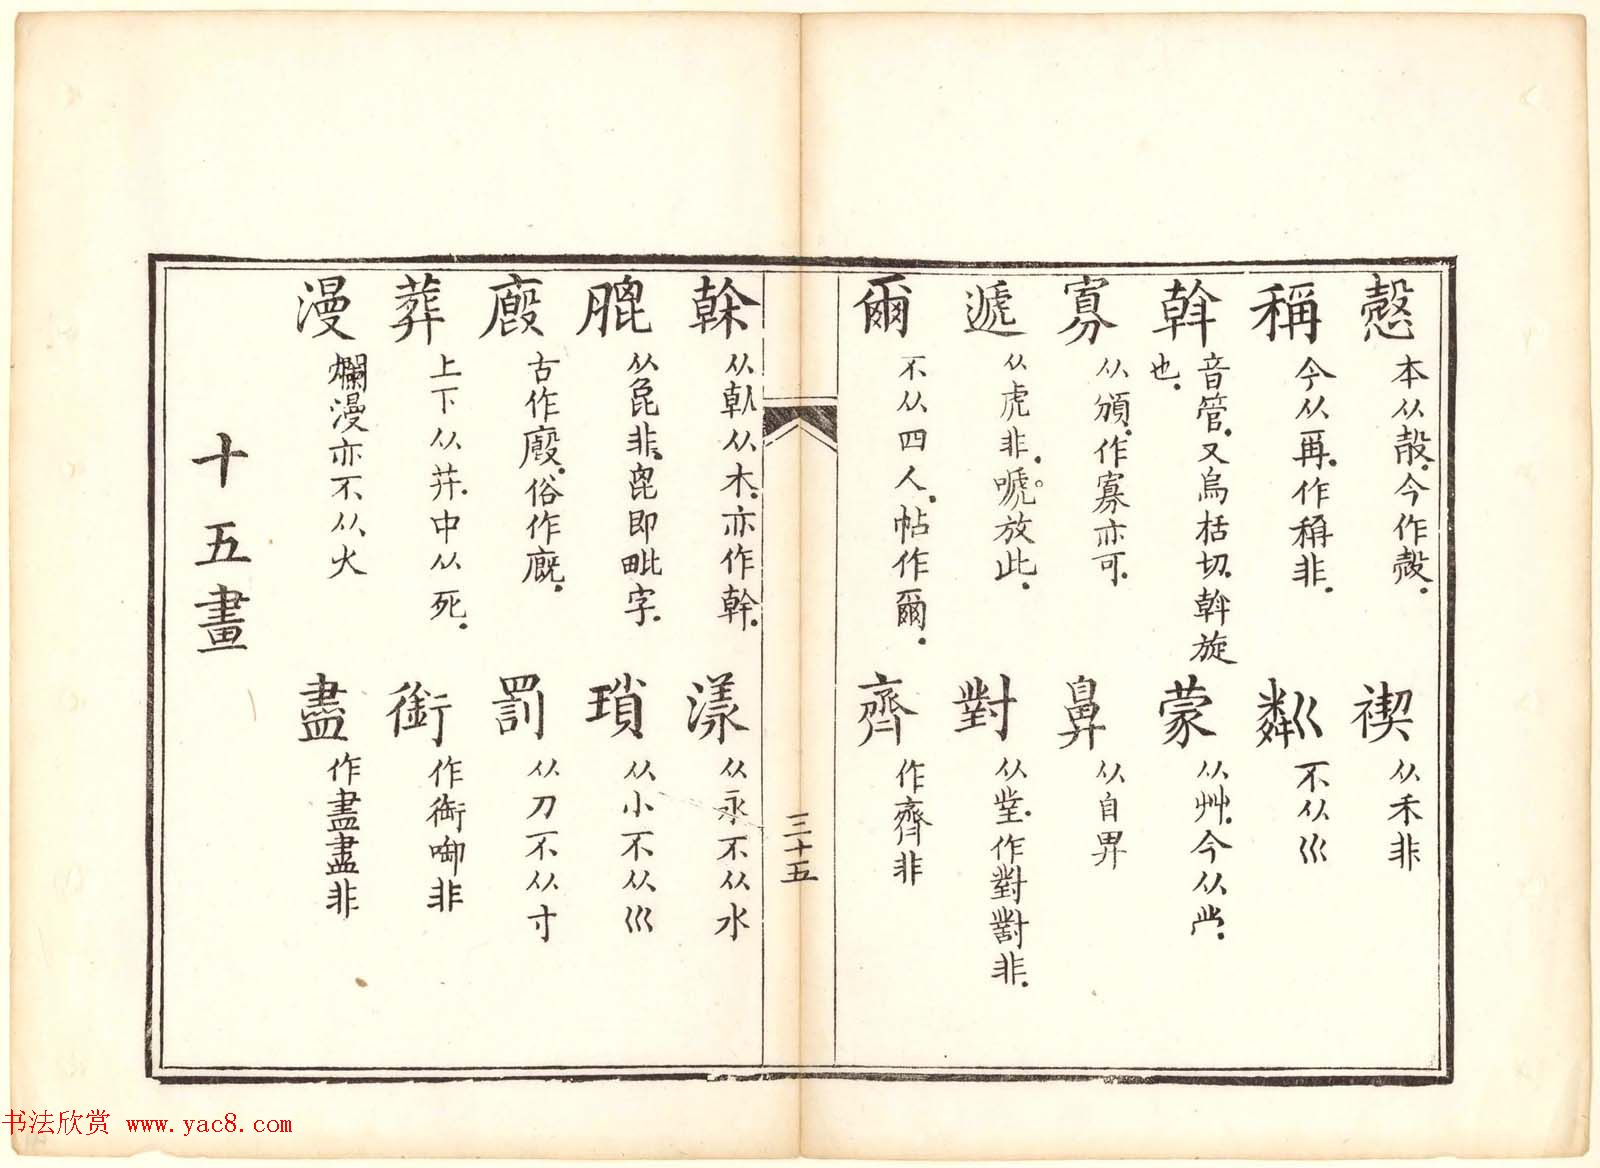 愨 本从㱿今作殼
禊 从禾非
稱 今从再作稱非
粼 不从巛
斡 音管又烏栝切斡旋
也
蒙 从艸今从䒑
寡 从頒作寡亦可
鼻 从自畀
遞 从虎非嗁放此
對 从丵作對對非
爾 不从四人帖作爾
齊 作齊非
三十五
榦 从倝从木亦作幹
漾 从永不从水
膍 从毘非毘即毗字
瑣 从小不从巛
廏 古作廏俗作廐
罰 从刀不从寸
葬 上下从茻中从死
銜 作衘啣非
漫 爛漫亦不从火
盡 作盡盡非
十五畫
书法欣赏 www.yac8.com